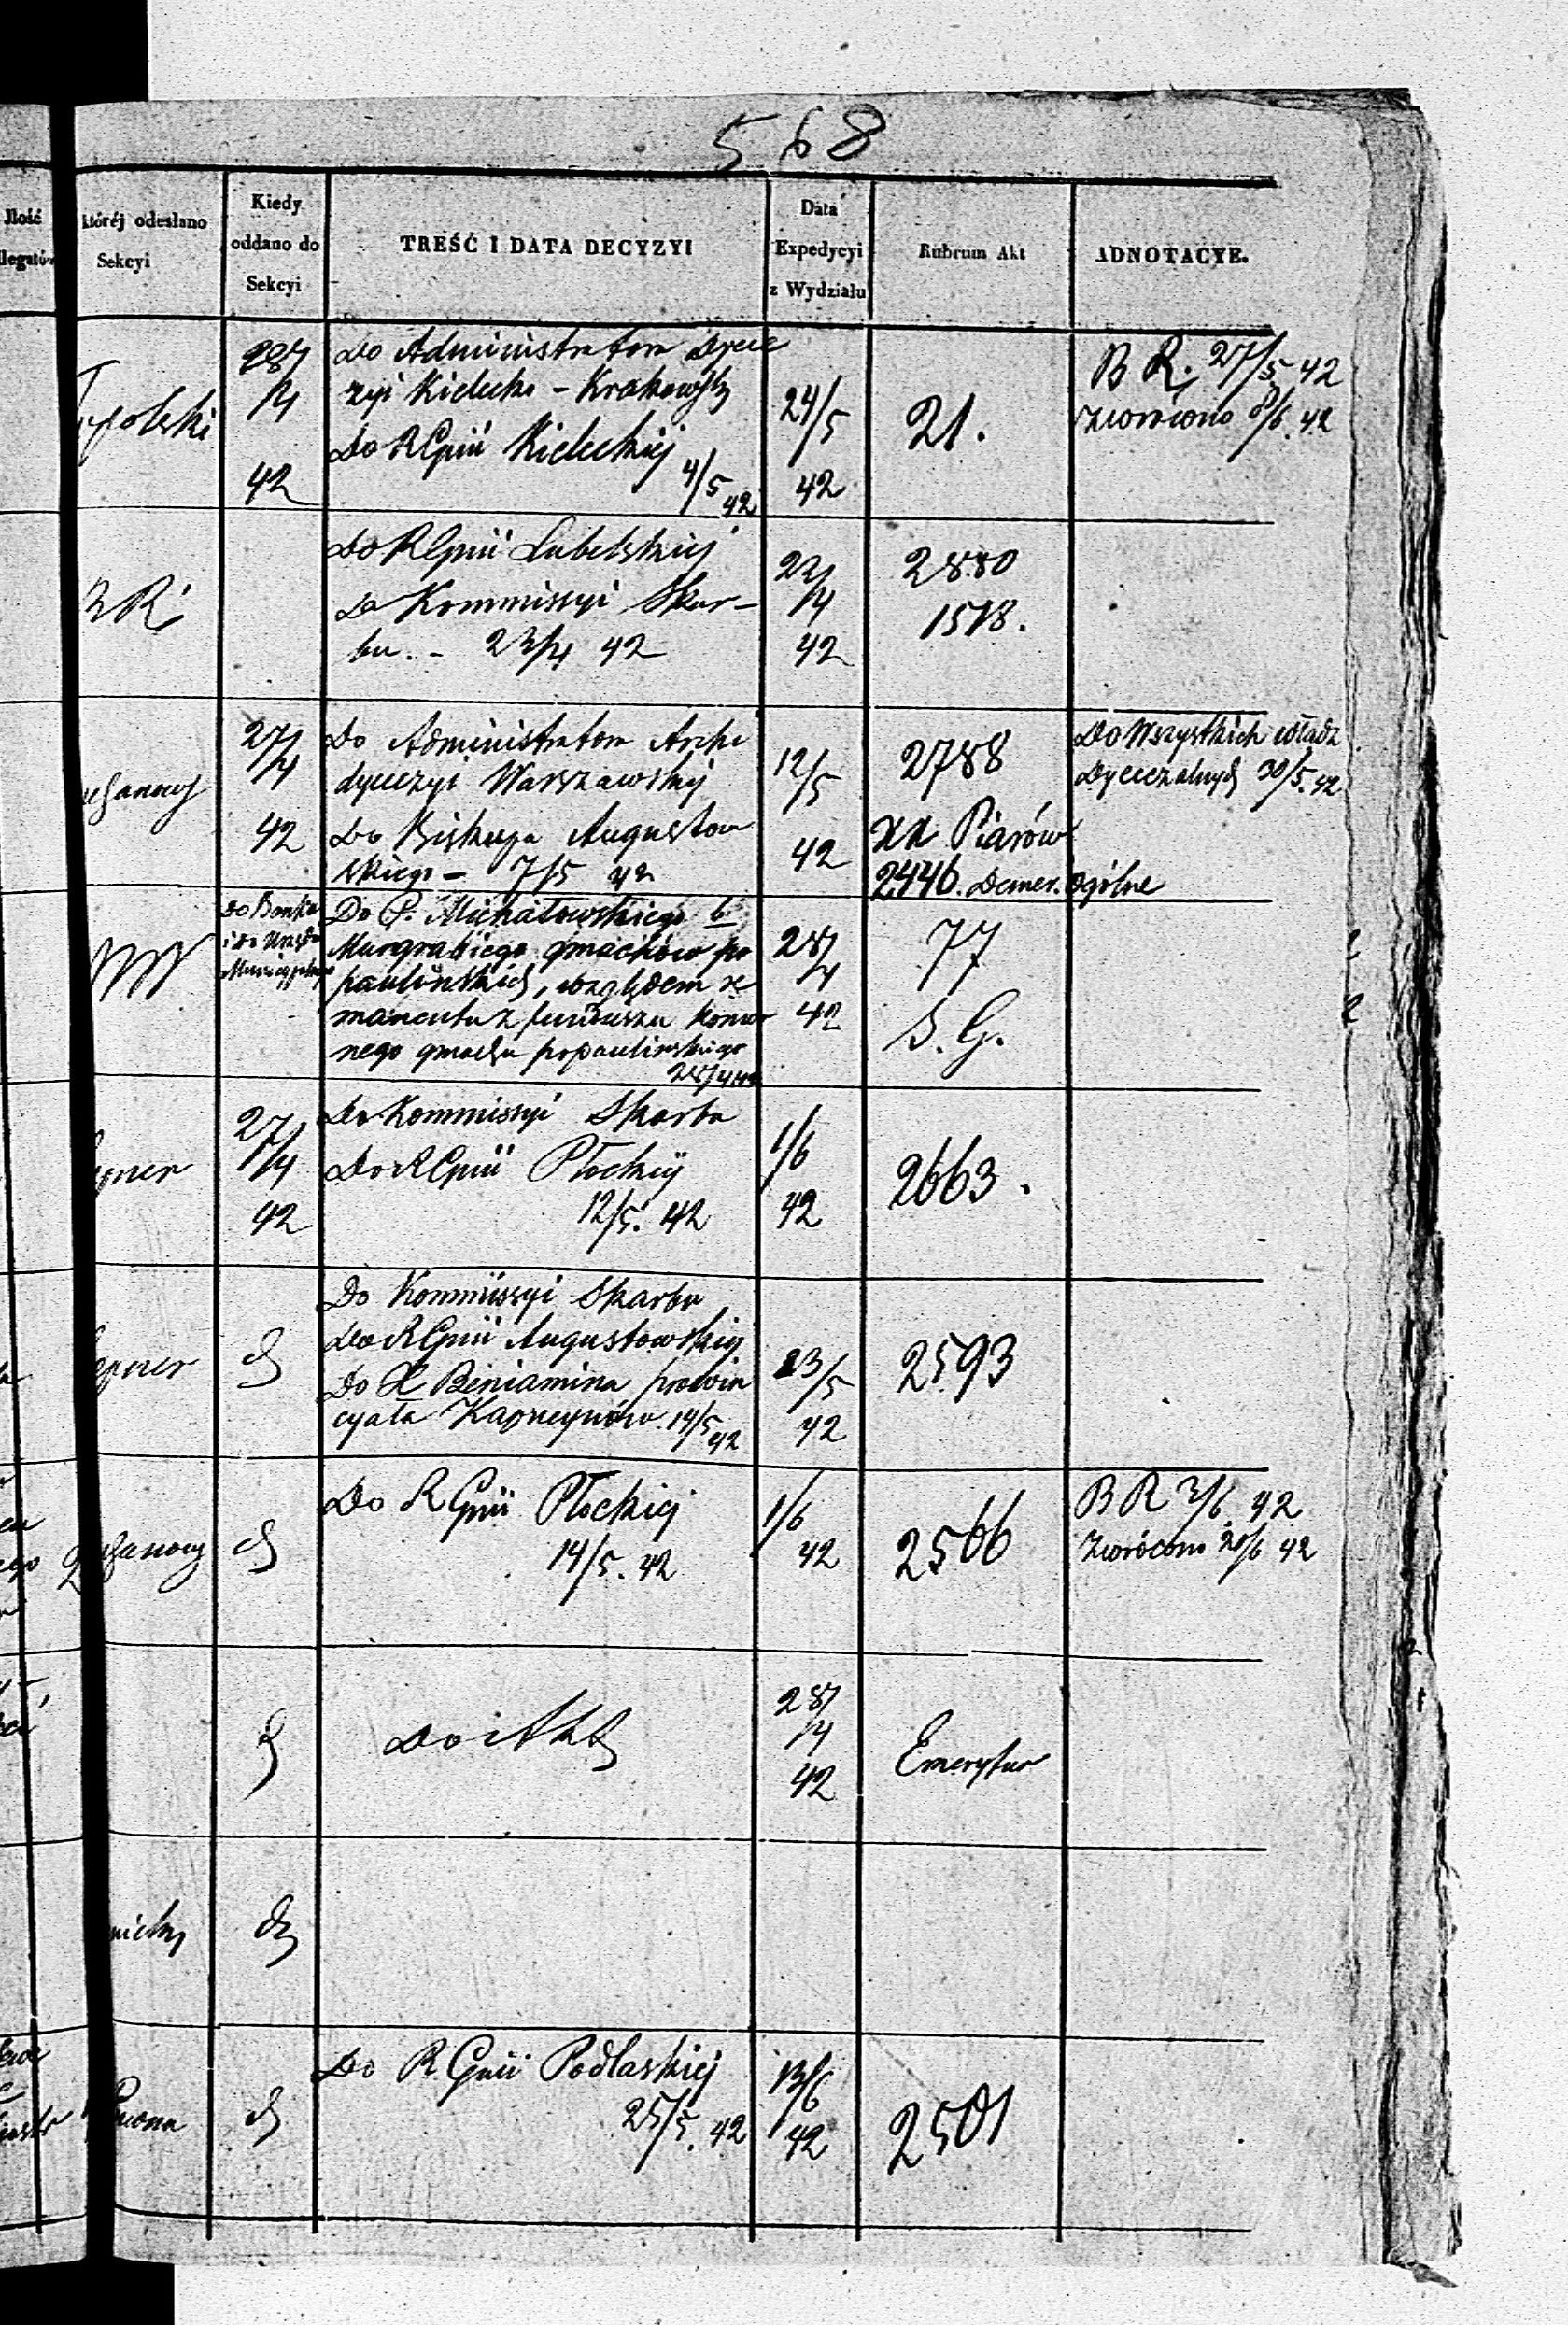 568
Ilość
której odesłano
Sekcyi
Kiedy
oddano do
Sekcyi
TREŚĆ I DATA DECYZYI
Data
Expedycyi
z Wydziału
Rubrum Akt
ADNOTACYE.
28/4 42
Do Administratora Dyece
zyi Kielecko - Krakowsky
Do RGnii Kieleckiej
4/5 42
24/5 42
21.
B R. 27/5 42
zwrócono 8/6. 42
B R
Do RGnii Lubelskiej
Do Kommissyi Skar-
bu. - 23/4 42
23/4 42
2880
1518.
27/4 42
Do Administratora Archi
dyecezyi Warszawskiej
Do Biskupa Augustow
skiego - 7/5 42
12/5 42
2788
XX Piarów
2446. Demer. Ogólne
Do Wszystkich władz
Dyecezalnych 30/5. 42
Do Banku
i do Urzędu
Do P. Michałowskiego b
Murgrabiego gmachów po
paulińskich, względem re
manentu z funduszu
nego gmachu popaulińskiego
28/4 42
28/4 42
77
S. G.
27/4 42
Do Kommissyi Skarbu
Do RGnii Płockiej
12/5. 42
1/6 42
2663.
Do Kommissyi Skarbu
Do RGnii Augustowskiej
Do X Beniamina prowin
cyała Kapucynów. 14/5 42
23/5 42
2593
Do R Gnii Płockiej
14/5. 42
1/6 42
2566
B R 2/6. 42
Zwrócono 20/6 42
Do Akt
28/4 42
Emerytur
Do R. Gnii Podlaskiej
25/5. 42
13/6 42
2501